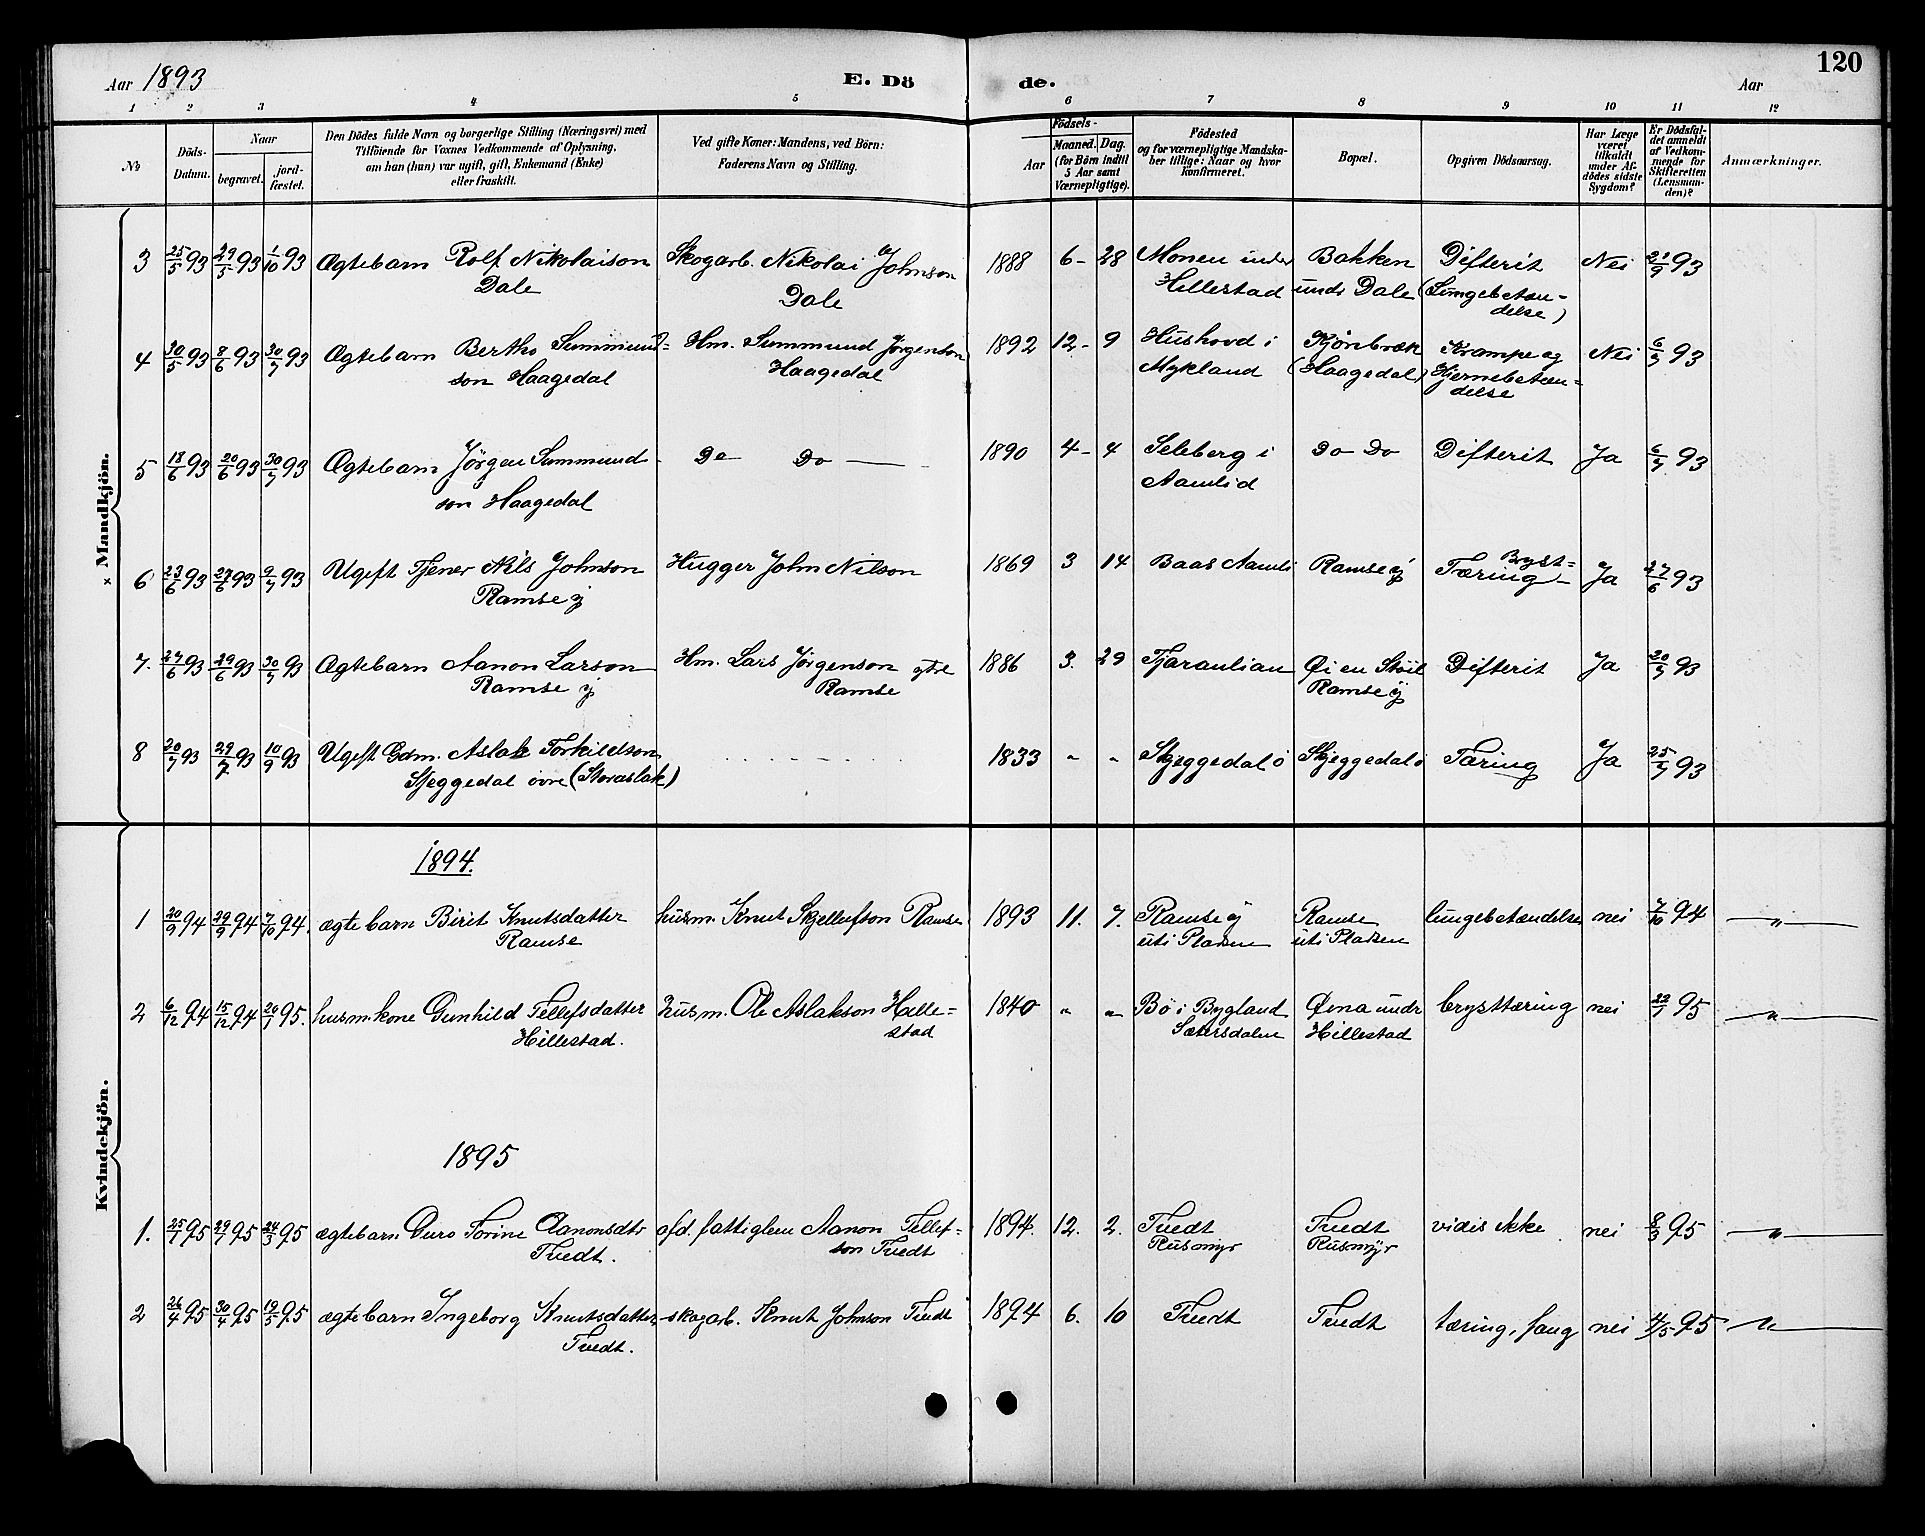 120
Aar 1893 E. Dö de. Aar
1 2 3 4 5 6 7 8 9 10 11 12
№ Döds-Datum. Naar begravet. jordfæstet. Den Dödes fulde Navn og borgerlige Stilling (Næringsvei) med Tilföiende for Voxnes Vedkommende af Oplysning, om han (hun) var ugift, gift, Enkemand (Enke) eller fraskilt. Ved gifte Koner: Mandens, ved Börn: Faderens Navn og Stilling. Födsels- Aar Maaned. Dag. (for Börn indtil 5 Aar samt Værnepligtige). Födested og for værnepligtige Mandskaber tillige: Naar og hvor konfirmeret. Bopæl. Opgiven Dödsaarsag. Har Læge været tilkaldt under Afdödes sidste Sygdom? Er Dödsfaldet anmeldt af Vedkommende for Skifteretten (Lensmanden)? Anmærkninger.
Mandkjön.
3 25/5 93 29/5 93 1/10 93 Ægtebarn Rolf Nikolaison Skogarb. Nikolai Johnson 1888 6- 28 Monen under Bakken Difterit Nei 21/9 93
Dale Dale Hillestad undr Dale (Lungebetæn-
delse)
4 30/5 93 8/6 93 30/7 93 Ægtebarn Bertho Summund- Hm. Summund Jörgenson 1892 12- 9 Hushovd i Kjönbræk Krampe og Nei 6/7 93
son Haagedal Haagedal Mykland (Haagedal) Hjernebetæn-
delse
5 18/6 93 20/6 93 30/7 93 Ægtebarn Jörgen Summund- Do Do 1890 4- 4 Seleberg i Do Do Difterit Ja 6/7 93
son Haagedal Aamlid
6 23/6 93 27/6 93 9/7 93 Ugift Tjener Nils Johnson Hugger John Nilson 1869 3 14 Baas Aamli Ramse y Bryst- Ja 27/6 93
Ramse y Tæring
7. 27/6 93 29/6 93 30/7 93 Ægtebarn Aanon Larson Hm. Lars Jörgenson ytre 1886 3. 29 Tjaraulian Øi en Stöil Difterit Ja 20/7 93
Ramse y Ramse Ramse y
8 20/7 93 29/7 93 10/9 93 Ugift Gdm. Aslak Torkildson 1833 " " Skjeggedal ö Skjeggedal ö Tæring Ja 25/7 93
Skjeggedal övre (Storaslak)
Kvindekjön.
1894.
1 20/9 94 29/9 94 7/10 94. ægtebarn Birit Knutsdatter husm. Knut Skjellefson Ramse 1893 11. 7. Ramse y Ramse lungebetændelse nei 7/10 94 "
Ramse uti Pladsen uti Pladsen
2 6/12 94 15/12 94 20/1 95. husm.kone Gunhild Tellefsdatter husm. Ole Aslakson Hille- 1840 " " Bö i Bygland Øina undr brysttæring nei 22/1 95 "
Hillestad. stad Sætersdalen Hillestad
1895
1. 25/1 95 29/1 95 24/3 95 ægtebarn Guro Torine Aanonsdtr afd. fattiglem Aanon Tellef- 1894. 12. 2. Tvedt Tvedt vidis ikke nei 8/3 95 "
Tvedt. son Tvedt Rusmyr Rusmyr
2 26/4 95 30/4 95 19/5 95 ægtebarn Ingeborg Knutsdatter skogarb. Knut Johnson Tvedt 1894 6. 10 Tvedt Tvedt tæring, nei 4/5 95 "
Tvedt.